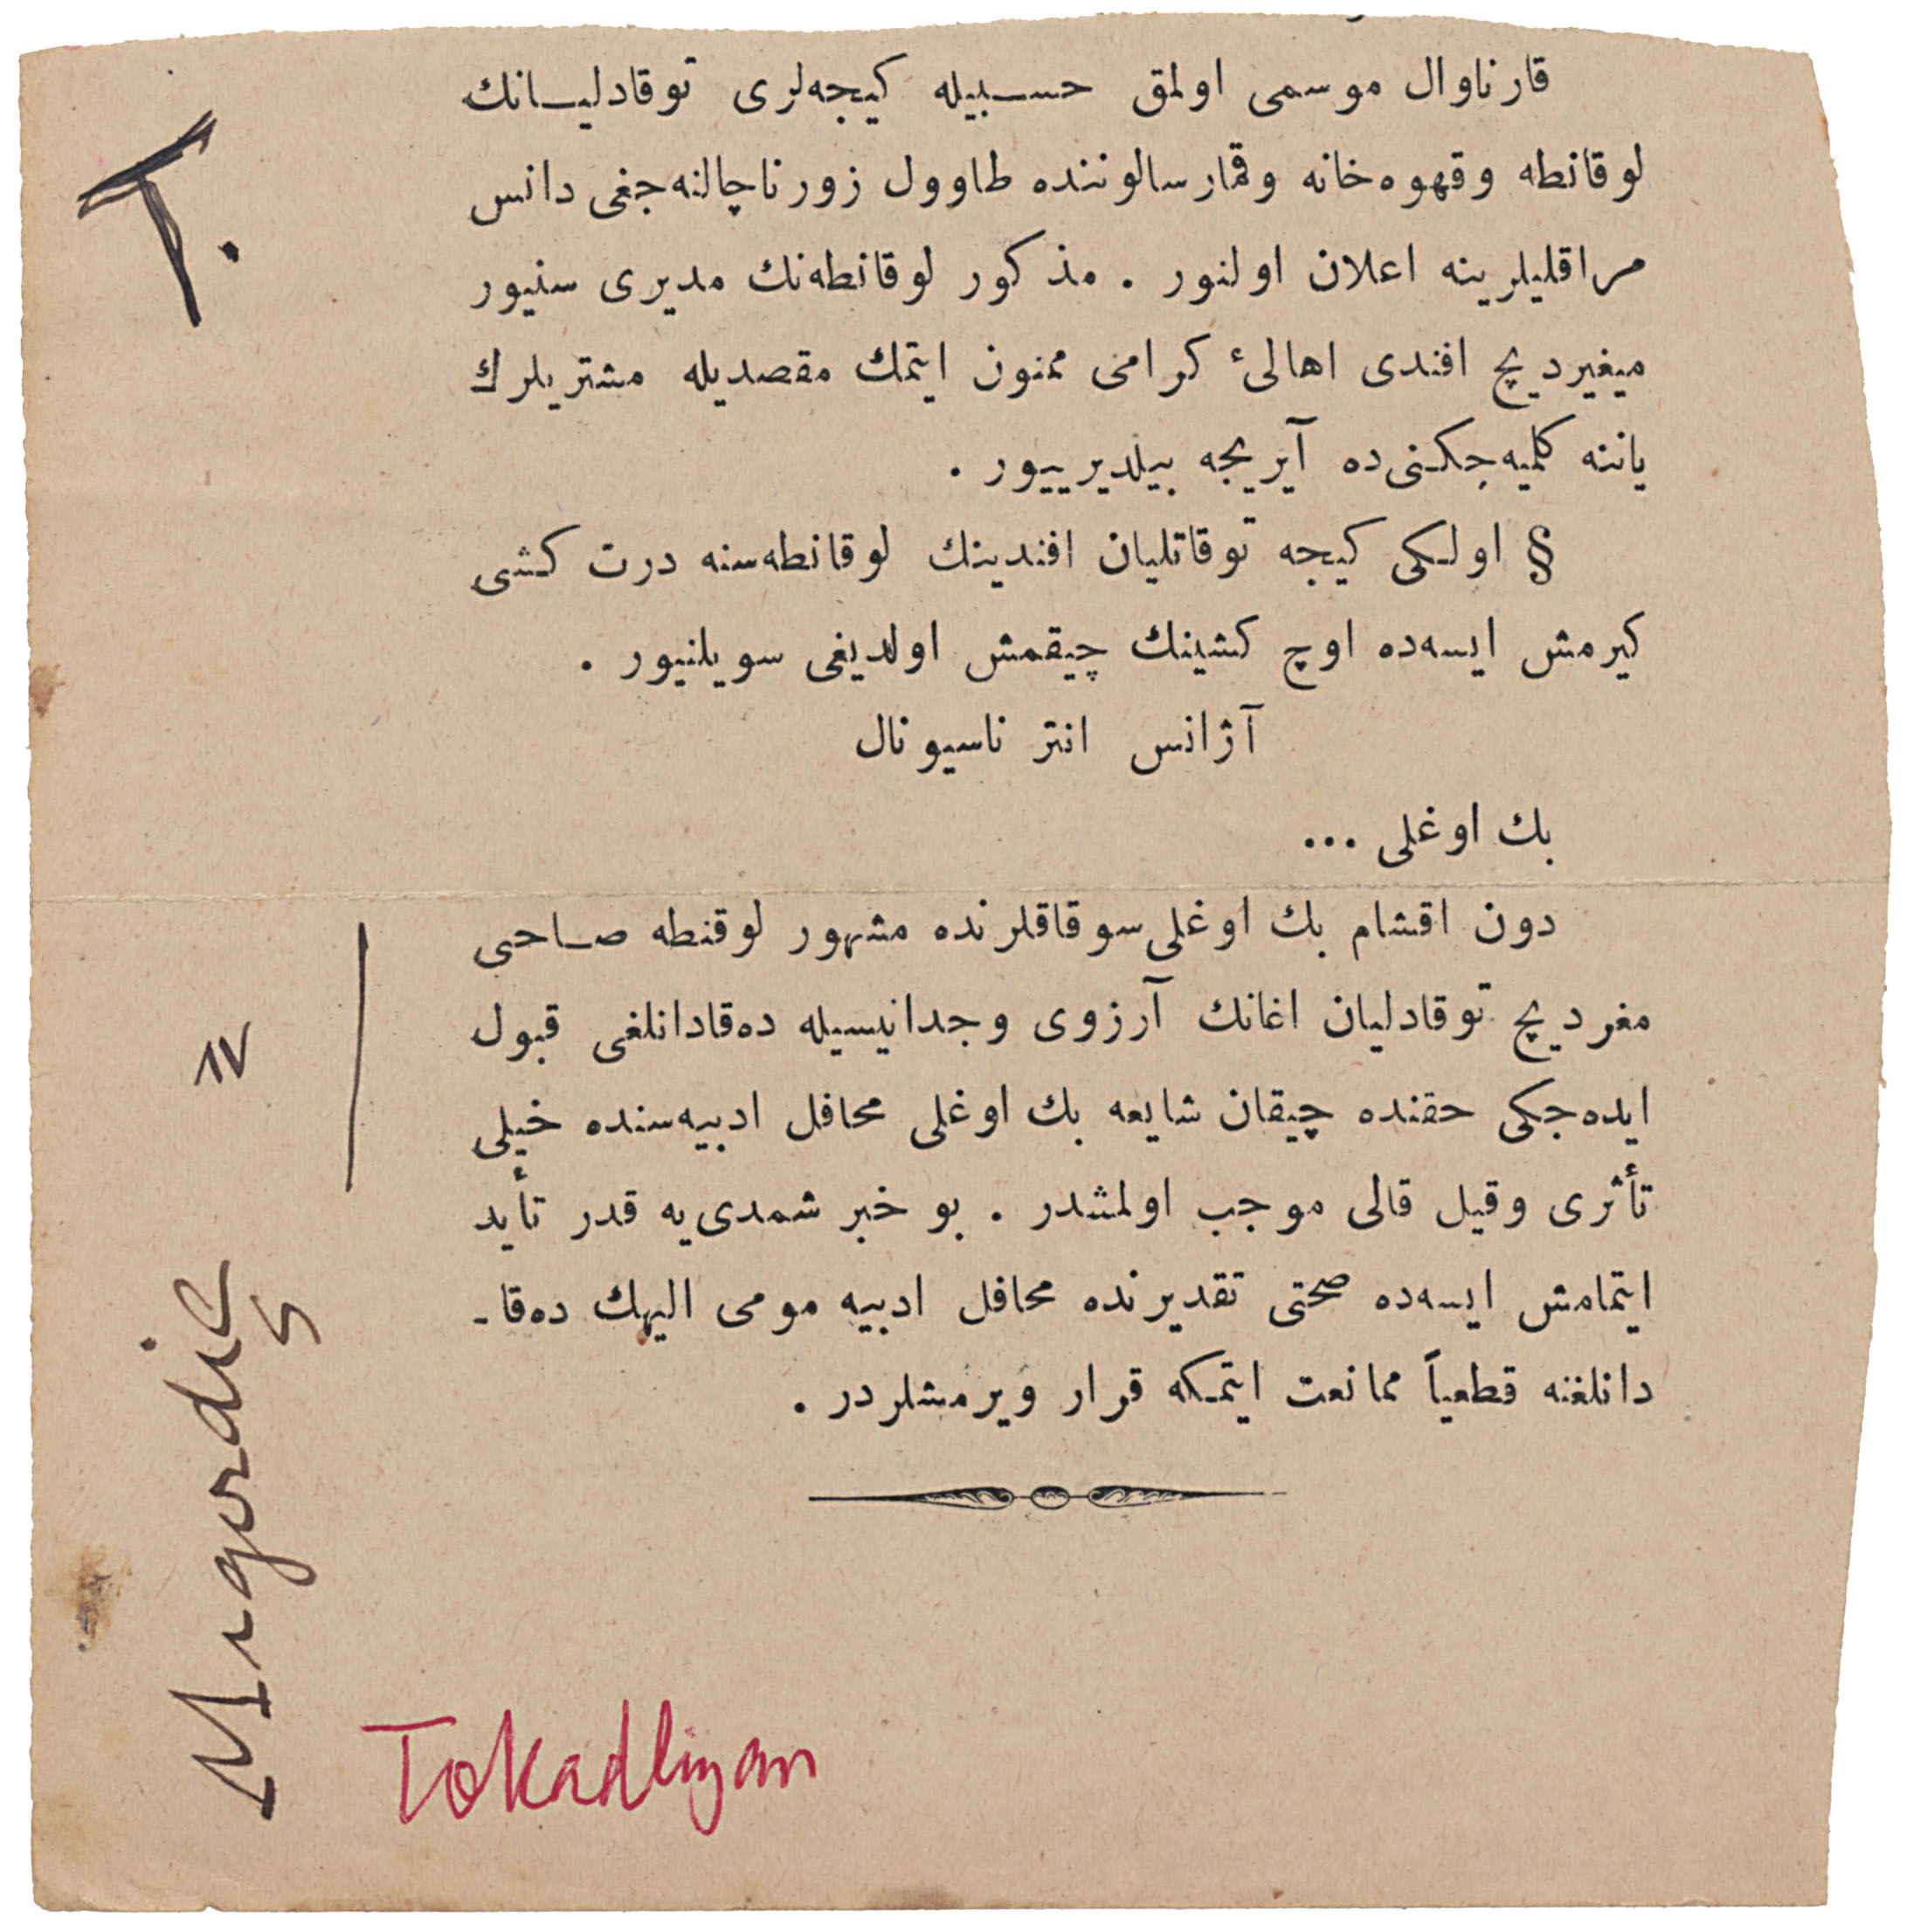 قارناوال موسمی اولمق حسبیله کیجه‌لری توقادلیانك
لوقانطه وقهوه‌خانه وقمار سالوننده طاوول زورنا چالنه‌جغی دانس
مراقلیلرینه اعلان اولنور . مذکور لوقانطه‌نك مدیری سنیور
میغیردیچ افندی اهالیٔ کرامی ممنون ایتمك مقصدیله مشتریلرك
یاننه کلمیه‌جکنی‌ده آیریجه بیلدیرییور .
§ اولکی کیجه توقاتلیان افندینك لوقانطه‌سنه درت کشی
کیرمش ایسه‌ده اوچ کشینك چیقمش اولدیغی سویلنیور .
آژانس انتر ناسیونال
بك اوغلی ...
دون اقشام بك اوغلی سوقاقلرنده مشهور لوقنطه صاحبی
مغردیچ توقادلیان اغانك آرزوی وجدانیسیله ده‌قادانلغی قبول
ایده‌جکی حقنده چیقان شایعه بك اوغلی محافل ادبیه‌سنده خیلی
تأثری وقیل قالی موجب اولمشدر . بو خبر شمدی‌یه قدر تأید
ایتمامش ایسه‌ده صحتی تقدیرنده محافل ادبیه مومی الیهك ده‌قا-
دانلغنه قطعیاً ممانعت ایتمکه قرار ویرمشلردر .
T.
Migirdiç
Tokadlıyan